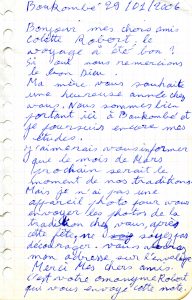 Boukombé 29/01/2006
Bonjour mes chers amis
Colette, Robert, le
voyage a été bon ?
Si oui nous remercions
le bon Dieu.
Ma mère vous souhaite
une heureuse année chez
vous. Nous sommes bien
portant ici à Boukombé et
je poursuis encore mes
études.
J'aimerais vous informer
que le mois de Mars
prochain serait le
moment de nos traditions
Mais je n'ai pas une
appareil photo pour vous
envoyer les photos de la
tradition chez vous, après
cette fête ne soyez pas
découragés. vous
mon adresse sur l'enveloppe
Merci Mes chers amis
c'est votre omonyme Robert
qui vous envoye cette note.